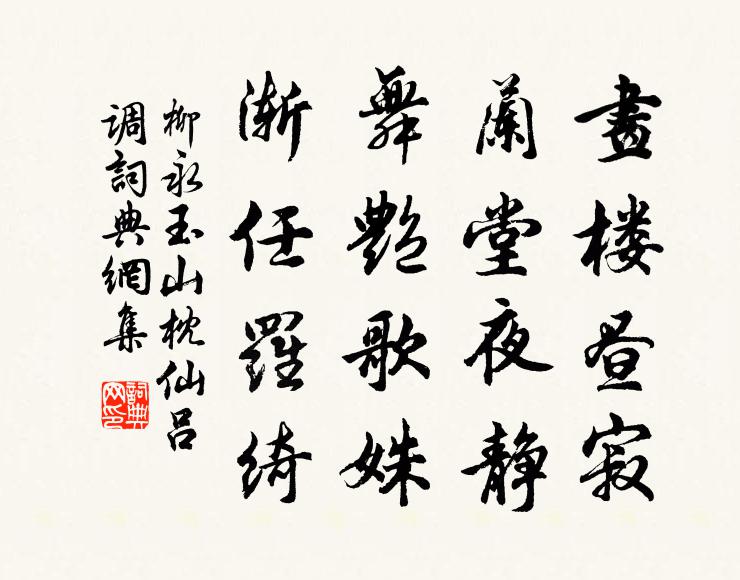 畫楼昼寂
蘭堂夜静
舞艶歌姝
漸任羅綺
柳永玉山枕仙吕
调詞典網集
詞典
网印